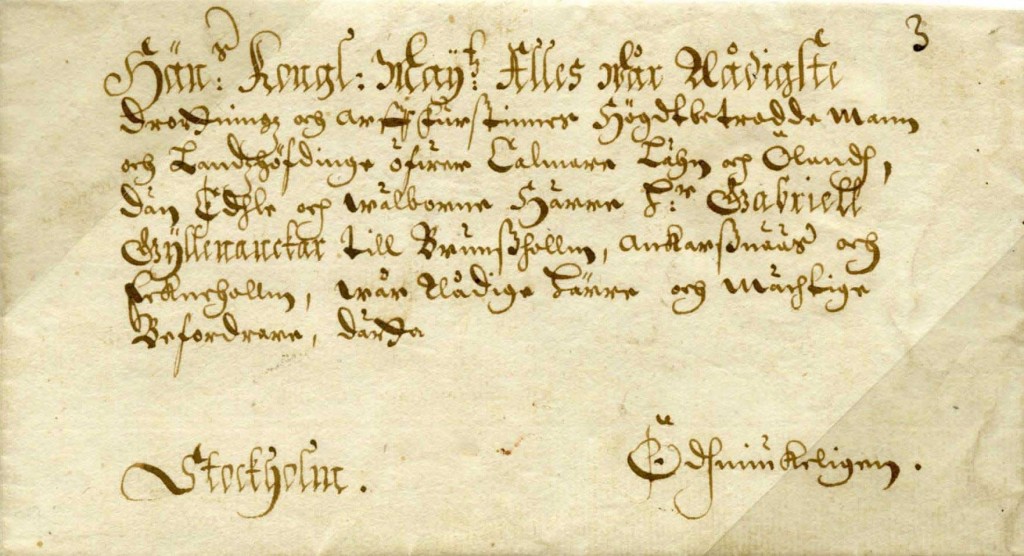 3
Hän:s Kongl: May:tz Alles wår Nådigste
Drottningz och Arff Furstinnes Högdtbetrodde Mann
och Landzhöfdinge öfwer Calmare Lähn och Ölandh,
dän Edhle och wälborne Härre H:r Gabriell
Gyllenanckar till Brunssholm, Ankarssnääs och
holm, wår Nådige Härre och Mächtige
Befordrare, dätta
Stockholm.
Ödhmiukeligen.